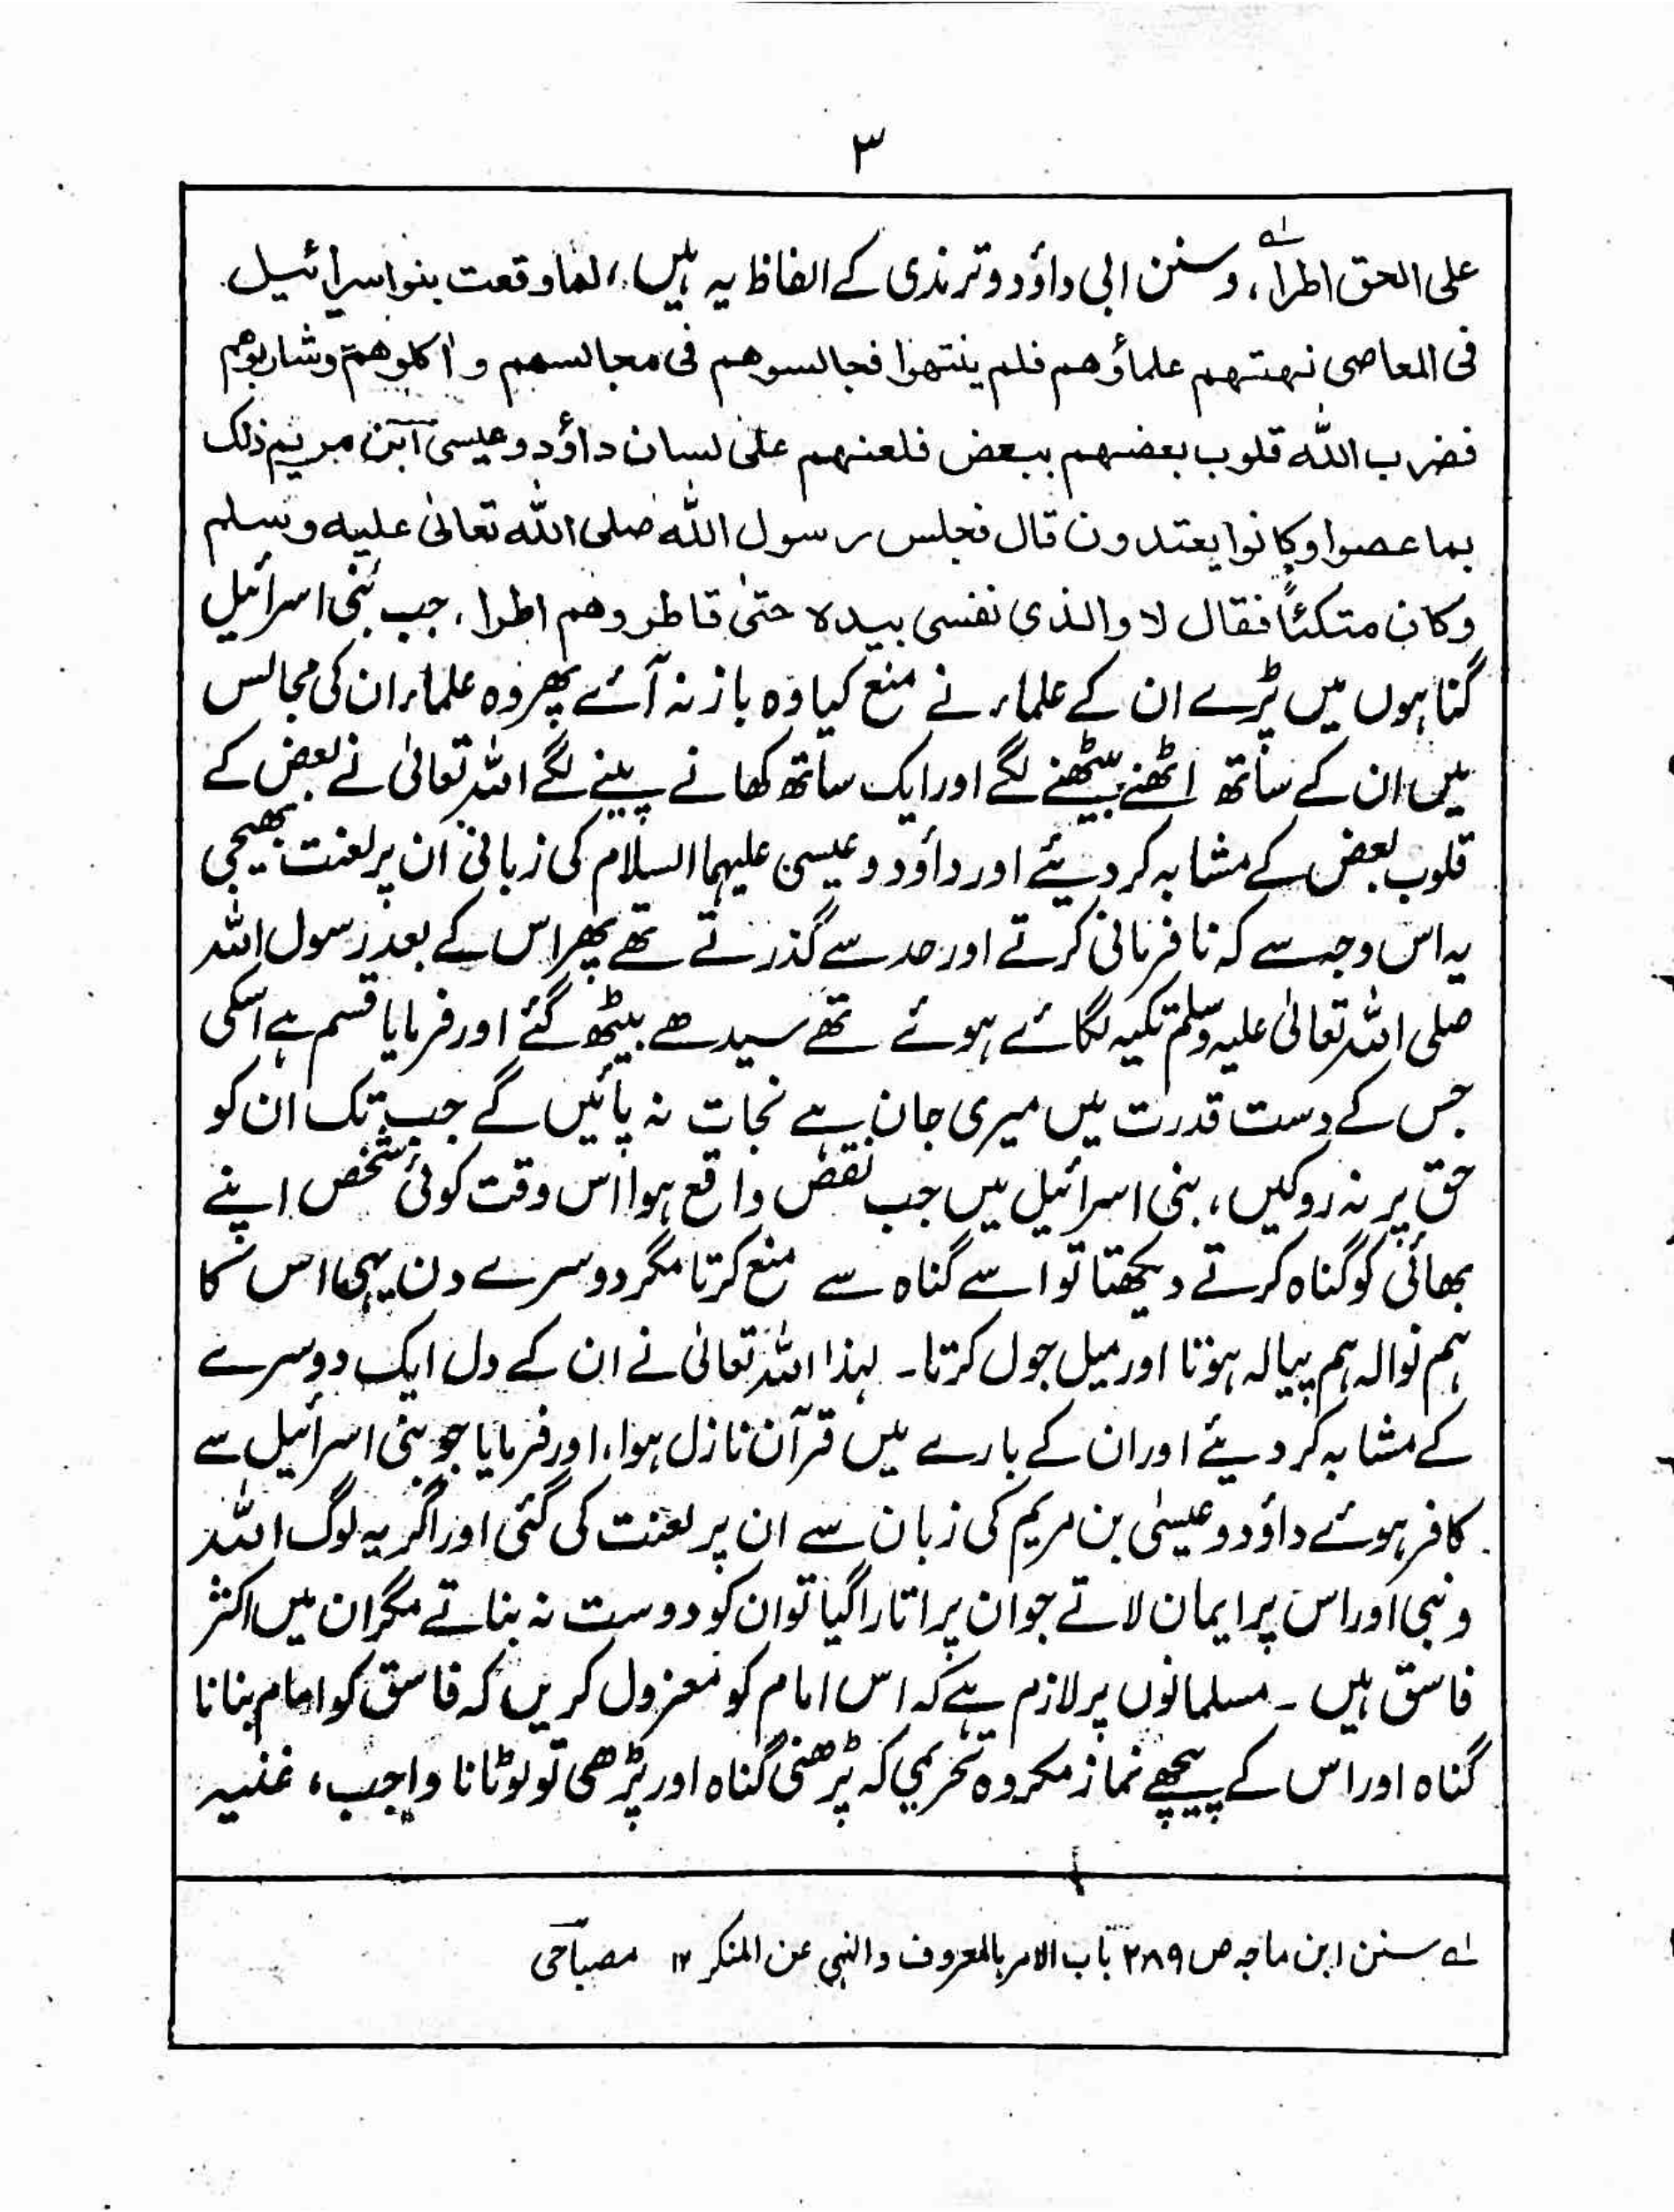 ۳
علی الحق اطرا لے، و سنن ابی داؤد و ترمذی کے الفاظ یہ ہیں، لما وقعت بنو اسرائیل
فی المعاصی نہتہم علماؤہم فلم ینتہوا فجالسوہم فی مجالسہم و اٰکلوہم وشاربوہم
فضرب اللہ قلوب بعضہم ببعض فلعنہم علیٰ لسان داؤد و عیسیٰ ابن مریم ذلک
بما عصوا وکانوا یعتدون قال فجلس رسول اللہ صلی اللہ تعالیٰ علیہ وسلم
وکان متکئاً فقال لا والذی نفسی بیدہ حتیٰ قاطروہم اطرا، جب بنی اسرائیل
گناہوں میں پڑے ان کے علماء نے منع کیا وہ باز نہ آئے پھر وہ علماء ان کی مجالس
میں ان کے ساتھ اٹھنے بیٹھنے لگے اور ایک ساتھ کھانے پینے لگے اللہ تعالیٰ نے بعض کے
قلوب بعض کے مشابہ کر دیئے اور داؤد و عیسیٰ علیہما السلام کی زبانی ان پر لعنت بھیجی
یہ اس وجہ سے کہ نافرمانی کرتے اور حد سے گذرتے تھے پھر اس کے بعد رسول اللہ
صلی اللہ تعالیٰ علیہ وسلم تکیہ لگائے ہوئے تھے سیدھے بیٹھ گئے اور فرمایا قسم ہے اسکی
جس کے دست قدرت میں میری جان ہے نجات نہ پائیں گے جب تک ان کو
حق پر نہ روکیں، بنی اسرائیل میں جب نقص واقع ہوا اس وقت کوئی شخص اپنے
بھائی کو گناہ کرتے دیکھتا تو اسے گناہ سے منع کرتا مگر دوسرے دن یہی اس کا
ہم نوالہ ہم پیالہ ہوتا اور میل جول کرتا۔ لہذا اللہ تعالیٰ نے ان کے دل ایک دوسرے
کے مشابہ کر دیئے اور ان کے بارے میں قرآن نازل ہوا، اور فرمایا جو بنی اسرائیل سے
کافر ہوئے داؤد و عیسیٰ بن مریم کی زبان سے ان پر لعنت کی گئی اور اگر یہ لوگ اللہ
و نبی اور اس پر ایمان لاتے جو ان پر اتارا گیا تو ان کو دوست نہ بناتے مگر ان میں اکثر
فاسق ہیں ۔ مسلمانوں پر لازم ہے کہ اس امام کو معزول کریں کہ فاسق کو امام بنانا
گناہ اور اس کے پیچھے نماز مکروہ تحریمی کہ پڑھنی گناہ اور پڑھی تو لوٹانا واجب، غنیہ
لے سنن ابن ماجہ ص ۲۸۹ باب الامر بالمعروف والنہی عن المنکر ۱۲ مصباحی